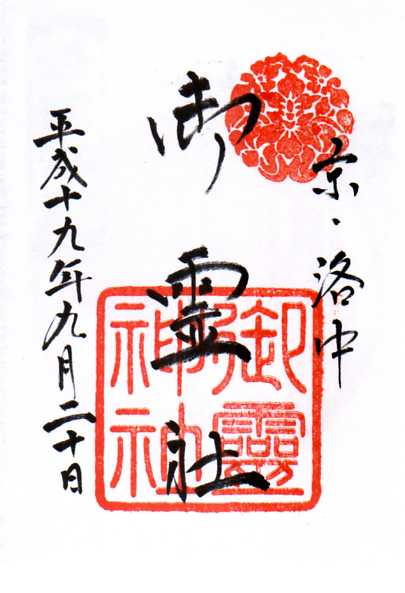 京・洛中
御霊社
平成十九年九月二十日
御靈
神社